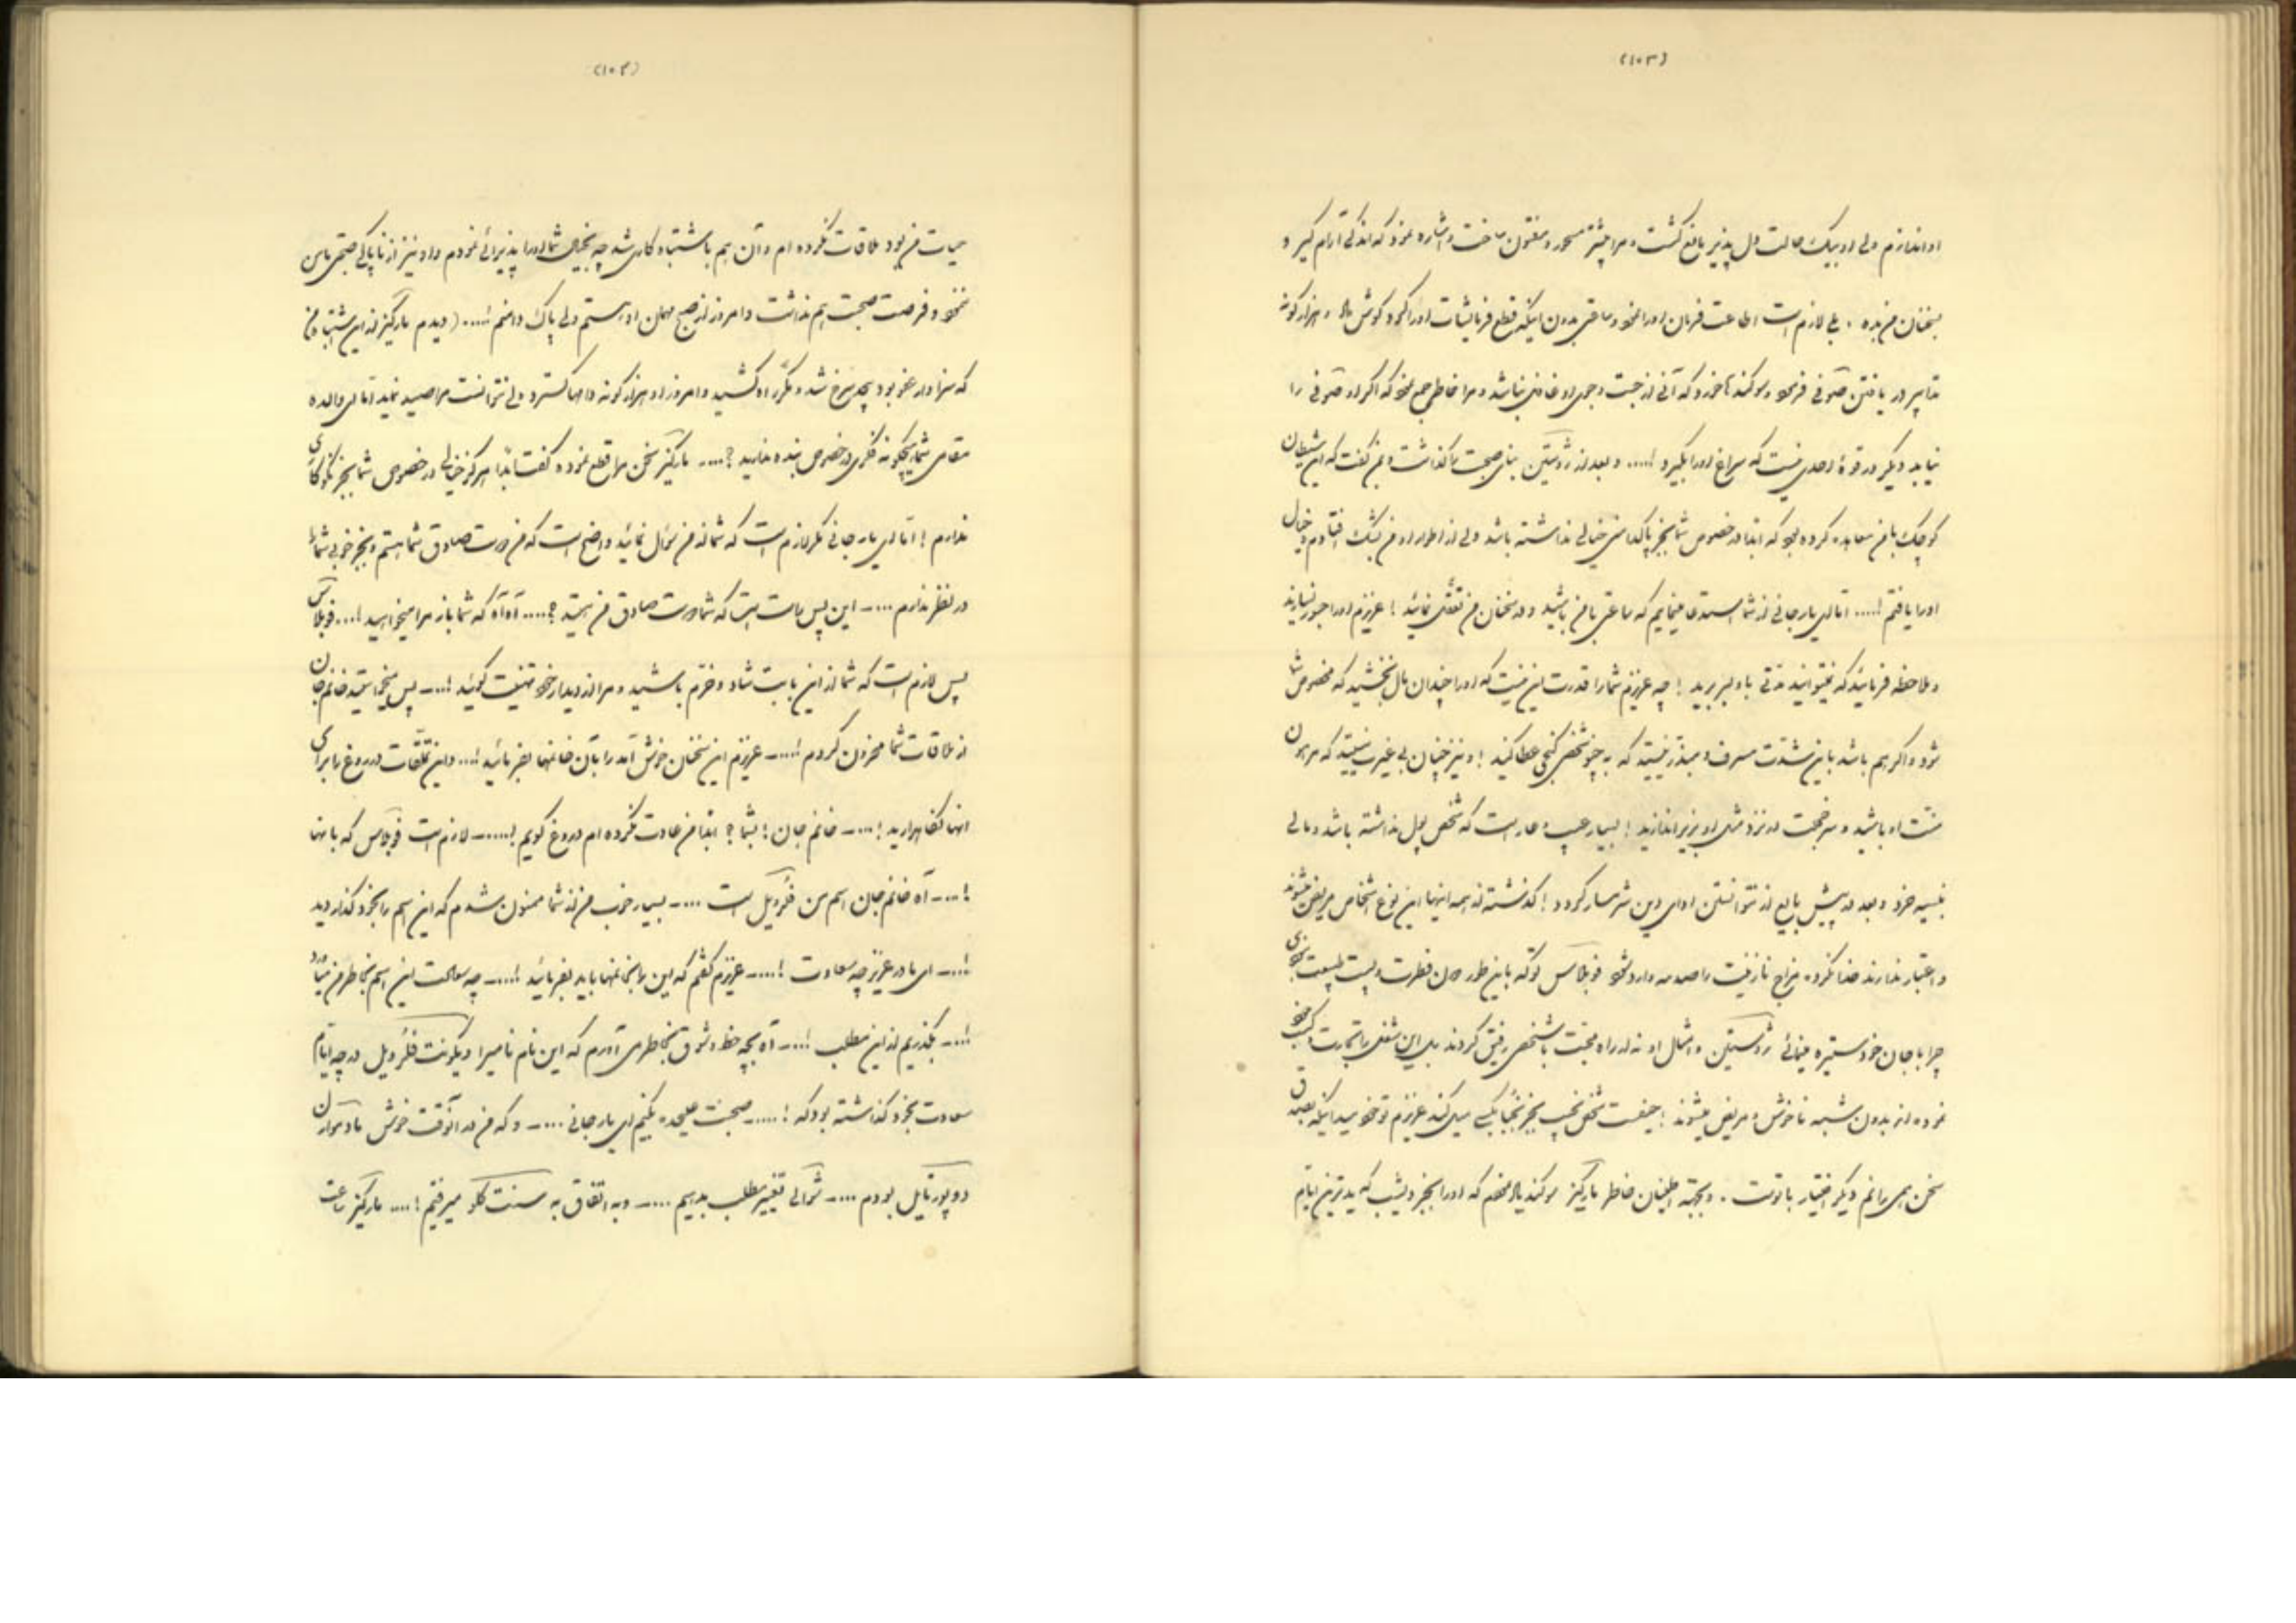 (۱۰۳)
او اندازم ولی او بیک حالت دل پذیر مانع گشت و مرا بیشتر مسحور و مفتون ساخت و اشاره نمود که اندکی آرام گیر و
بسخنان من بده . بلی لازم است اطاعت فرمان او را نمود ساعتی بدون اینکه قطع فرمایشات او را کرد گوش داد و هزار گونه
تدابیر در یافتن صوفی فرمود و سوگندها خورد که آنی از جست و جوی او غافل نباشد و مرا خاطر جمع نمود که اگر او صوفی را
نیابد دیگر در قوهٔ احدی نیست که سراغ او را بگیرد !.... و بعد از رُوستَین بنای صحبت را گذاشت و بمن گفت که این شیطان
کوچک با من معاهده کرده بود که ابداً در خصوص شما بجز پاکدامنی خیالی نداشته باشد ولی از اطوار او من بشک افتادم و خیال
او را یافتم !.... اما ای یار جانی از شما استدعا مینمایم که ساعتی با من باشید و در سخنان من تعقّل نمائید ! عزیزم او را جسور نسازید
و ملاحظه فرمائید که نمیتوانید مدتی با او بسر برید ! چه عزیزم شما را قدرت این نیست که او را چندان مال بخشید که مخصوص شما
شود و اگر هم باشد باین شدت مسرف و مبذر نیستید که به چنین شخصی گنجی عطا کنید ! و نیز چنان بی غیرت نیستید که مرهون
منت او باشید و سر خجلت در نزد مثل او بزیر اندازید ! بسیار عیب و عار است که شخص پول نداشته باشد و مالی
بنسیه خرد و بعد در پیش بایع از نتوانستن ادای دین شرمسار گردد ! گذشته از همه اینها این نوع اشخاص مریض میشوند
و اعتبار ندارند خدا نکرده مزاج نازنینت را صدمه وارد شود فوبلاس تو که باین طور دون فطرت و پست طبیعت نبودی
چرا با جان خود ستیزه مینمائی رُوستَین و امثال او نه از راه محبت با شخص رفیق گردند بلکه این شغل را تجارت و کسب خود
نموده اند بدون شبهه ناخوش و مریض میشوند ! حیفست شخص نجیب بجز نجبا با کسی میل کند عزیزم تو خود میدانی که بصدق
سخن همی رانم دیگر اختیار با توست . و بجهة اطمینان خاطر مارکیز سوگند یاد نمودم که او را بجز دیشب که بدترین ایام
(۱۰۴)
حیات من بود ملاقات نکرده ام و آن هم باشتباه کاری شد چه بخیال شما او را پذیرائی نمودم و او نیز از ناپاکی صحبتی با من
ننمود و فرصت صحبت هم نداشت و امروز از صبح مهمان او هستم ولی پاک دامنم !.... (دیدم مارکیز از این اشتباه من
که سزاوار عفو بود بیحد سرخ شد و مکرّر آه کشید و امروز او هزار گونه دامها گسترد ولی نتوانست مرا صید نماید اما ای والده
مقامی شما هیچگونه فکری در خصوص بنده ندارید ؟.... مارکیز سخن مرا قطع نموده گفت ابداً هرگز خیالی در خصوص شما بجز نیکوکاری
ندارم ! اما ای یار جانی مگر لازم است که شما از من سؤال نمائید واضح است که من دوست صادق شما هستم و بجز خوبی شما را
در نظر ندارم .... ــ این پس راست است که شما دوست صادق من هستید ؟.... آه آه که شما باز مرا میخواهید !.... فوبلاس
پس لازم است که شما از این بابت شاد و خرّم باشید و مرا از دیدار خود تهنیت گوئید !.... ــ پس میخواستید خانم جان
از ملاقات شما محزون گردم !.... ــ عزیزم این سخنان خوش آمد را بآن خانمها بفرمائید !.... و این تملّقات دروغ را برای
آنها نگاهدارید !.... ــ خانم جان ! بشما ؟ ابداً من عادت نکرده ام دروغ گویم !.... ــ لازم است فوبلاس که با آنها
!.... ــ آه خانم جان اسم من فلُرویل است .... ــ بسیار خوب من از شما ممنون شدم که این اسم را بخود گذاردید
!.... ــ ای مادر عزیز چه سعادت !.... ــ عزیزم گفتم که این را بخانمها باید بفرمائید !.... ــ چه سعادت این اسم بخاطر من میآورد
!.... ــ بگذریم از این مطلب !.... ــ آه بچه حظ و شوق بخاطر می آورم که این نام نامی را ویکونت فلُرویل در چه ایام
سعادت بخود گذاشته بود که !.... ــ صحبت علیحده بکنیم ای یار جانی .... ــ و که من در آنوقت خوش مادموازل
دوپورتایل بودم .... ــ شوالی تغییر مطلب بدهیم .... ــ و به اتفاق به سنت کلو میرفتیم !.... مارکیز ساعت